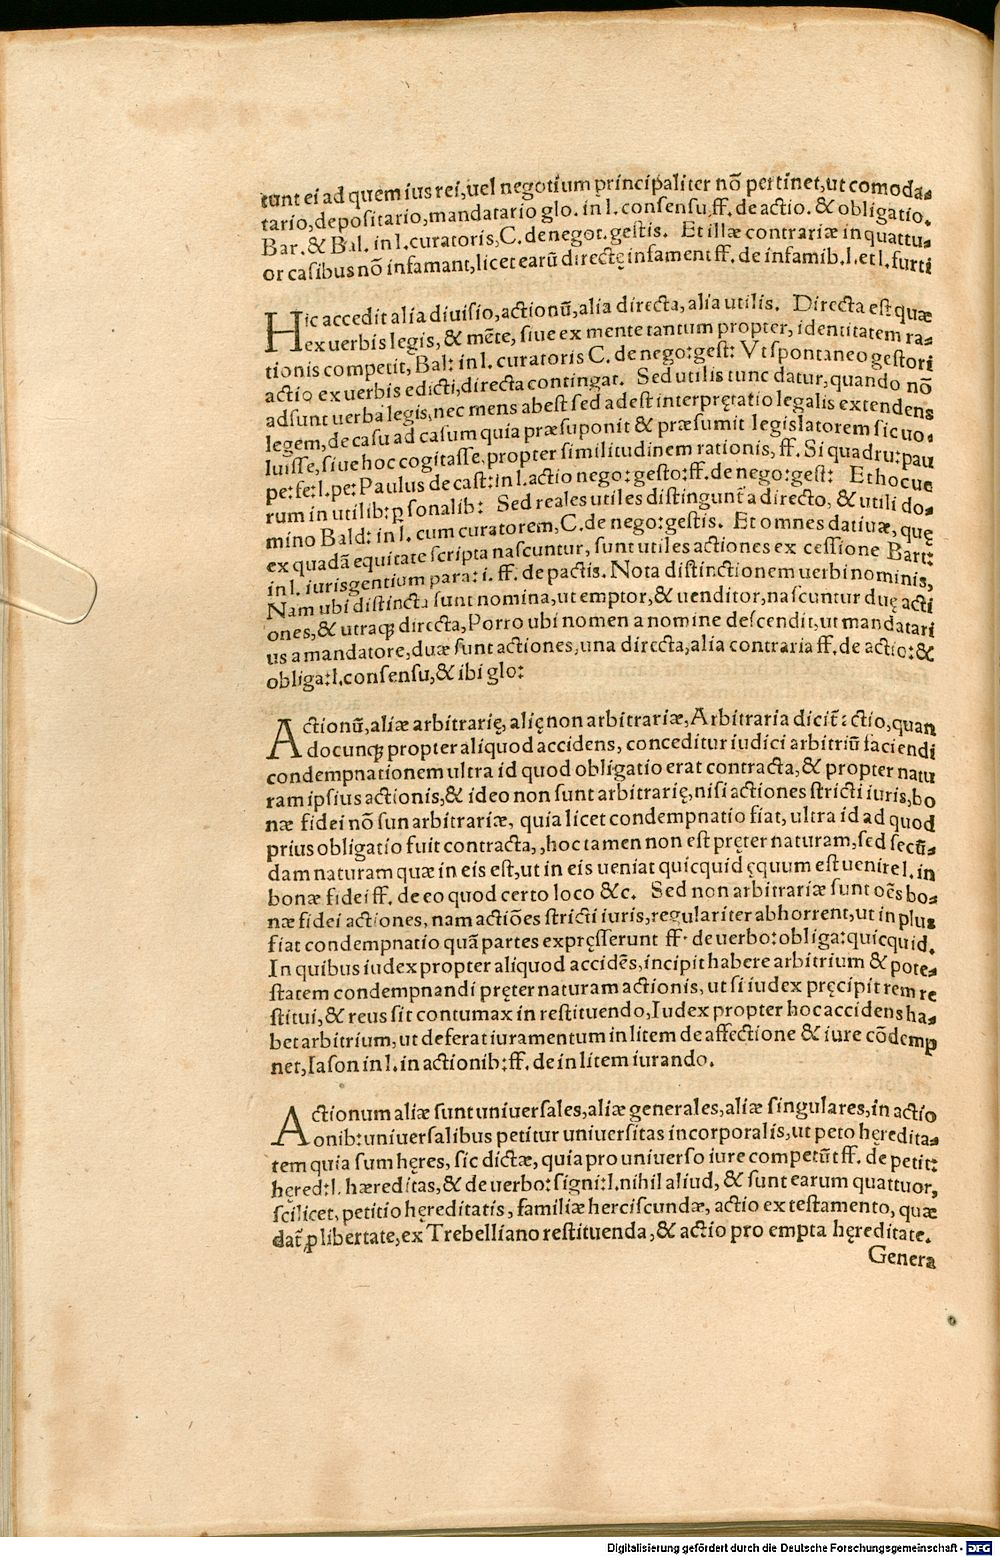 tunt ei ad quem ius rei, uel negotium principaliter nõ pertinet, ut comoda-
tario, depositario, mandatario glo. in l. consensu, ff. de actio. & obligatio.
Bar. & Bal. in l. curatoris, C. de negot. gestis. Et illæ contrariæ in quattu-
or casibus nõ infamant, licet earũ directę infament ff. de infamib. l. et l. furti
Hic accedit alia diuisio, actionũ, alia directa, alia utilis. Directa est quæ
ex uerbis legis, & mẽte, siue ex mente tantum propter, identitatem ra-
tionis competit, Bal: in l. curatoris C. de nego: gest: Vt spontaneo gestori
actio ex uerbis edicti, directa contingat. Sed utilis tunc datur, quando nõ
adsunt uerba legis, nec mens abest sed adest interpręratio legalis extendens
legem, de casu ad casum quia præsuponit & præsumit legislatorem sic uo-
luisse, siue hoc cogitasse, propter similitudinem rationis, ff. Si quadru: pau
pe: fe: l. pe: Paulus de cast: in l. actio nego: gesto: ff. de nego: gest: Et hoc ue
rum in utilib: ꝑsonalib: Sed reales utiles distingunt̃ a directo, & utili do-
mino Bald: in l. cum curatorem, C. de nego: gestis. Et omnes datiuæ, quę
ex quadã equitate scripta nascuntur, sunt utiles actiones ex cessione Bart:
in l. iurisgentium para: i. ff. de pactis. Nota distinctionem uerbi nominis,
Nam ubi distincta sunt nomina, ut emptor, & uenditor, nascuntur duę acti
ones, & utraqꝫ directa, Porro ubi nomen a nomine descendit, ut mandatari
us a mandatore, duæ sunt actiones, una directa, alia contraria ff. de actio: &
obliga: l. consensu, & ibi glo:
Actionũ, aliæ arbitrarię, alię non arbitrariæ, Arbitraria dicit̃: ctio, quan
docunqꝫ propter aliquod accidens, conceditur iudici arbitriũ faciendi
condempnationem ultra id quod obligatio erat contracta, & propter natu
ram ipsius actionis, & ideo non sunt arbitrarię, nisi actiones stricti iuris, bo
næ fidei nõ sun arbitrariæ, quia licet condempnatio fiat, ultra id ad quod
prius obligatio fuit contracta, , hoc tamen non est pręter naturam, sed secũ-
dam naturam quæ in eis est, ut in eis ueniat quicquid ęquum est uenire l. in
bonæ fidei ff. de eo quod certo loco &c. Sed non arbitrariæ sunt oẽs bo-
næ fidei actiones, nam actiões stricti iuris, regulariter abhorrent, ut in plus
fiat condempnatio quã partes expręsserunt ff. de uerbo: obliga: quicquid.
In quibus iudex propter aliquod accidẽs, incipit habere arbitrium & pote-
statem condempnandi pręter naturam actionis, ut si iudex pręcipit rem re
stitui, & reus sit contumax in restituendo, Iudex propter hoc accidens ha-
bet arbitrium, ut deferat iuramentum in litem de affectione & iure cõdemp
net, Iason in l. in actionib: ff. de in litem iurando.
Actionum aliæ sunt uniuersales, aliæ generales, aliæ singulares, in actio
onib: uniuersalibus petitur uniuersitas incorporalis, ut peto hęredita-
tem quia sum hęres, sic dictæ, quia pro uniuerso iure competũt ff. de petit:
hęred: l. hæreditas, & de uerbo: signi: l. nihil aliud, & sunt earum quattuor,
scilicet, petitio hęreditatis, familiæ herciscundæ, actio ex testamento, quæ
dat̃ ꝓ libertate, ex Trebelliano restituenda, & actio pro empta hęreditate.
Genera
Digitalisierung gefördert durch die Deutsche Forschungsgemeinschaft - DFG